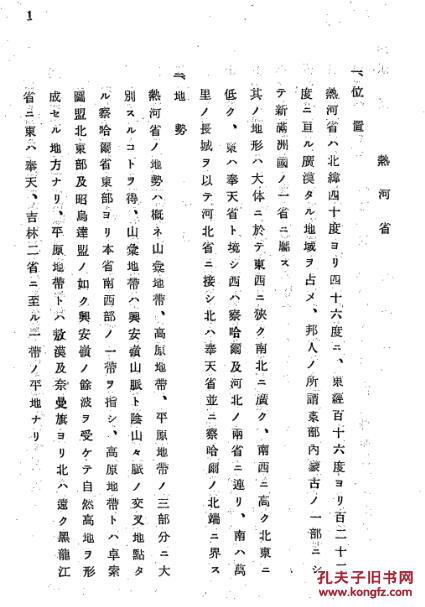 1
熱河省
一、位置
熱河省ハ北緯四十度ヨリ四十六度ニ、東經百十六度ヨリ百二十一
度ニ亘ル廣漠タル地域ヲ占メ、邦人ノ所謂東部內蒙古ノ一部ニシ
テ新滿洲國ノ一省ニ屬ス
其ノ地形ハ大体ニ於テ東西ニ狹ク南北ニ廣ク、南西ニ高ク北東ニ
低ク、東ハ奉天省ト境シ西ハ察哈爾及河北ノ兩省ニ連リ、南ハ萬
里ノ長城ヲ以テ河北省ニ接シ北ハ奉天省並ニ察哈爾ノ北端ニ界ス
二、地勢
熱河省ノ地勢ハ概ネ山彙地帶、高原地帶、平原地帶ノ三部分ニ大
別スルコトヲ得、山彙地帶ハ興安嶺山脈ト陰山々脈ノ交叉地點タ
ル察哈爾省東部ヨリ本省南西部ノ一帶ヲ指シ、高原地帶トハ卓索
圖盟北東部及昭烏達盟ノ如ク興安嶺ノ餘波ヲ受ケテ自然高地ヲ形
成セル地方ナリ、平原地帶トハ敖漢及奈曼旗ヨリ北ハ遠ク黑龍江
省ニ東ハ奉天、吉林二省ニ至ル一帶ノ平地ナリ
孔夫子旧书网
www.kongfz.com